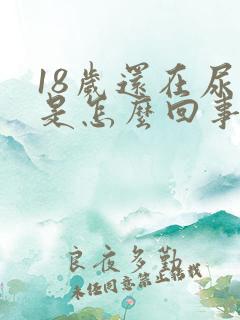 18歲還在尿
是怎麼回事
良夜多勤
未任同意禁止轉載